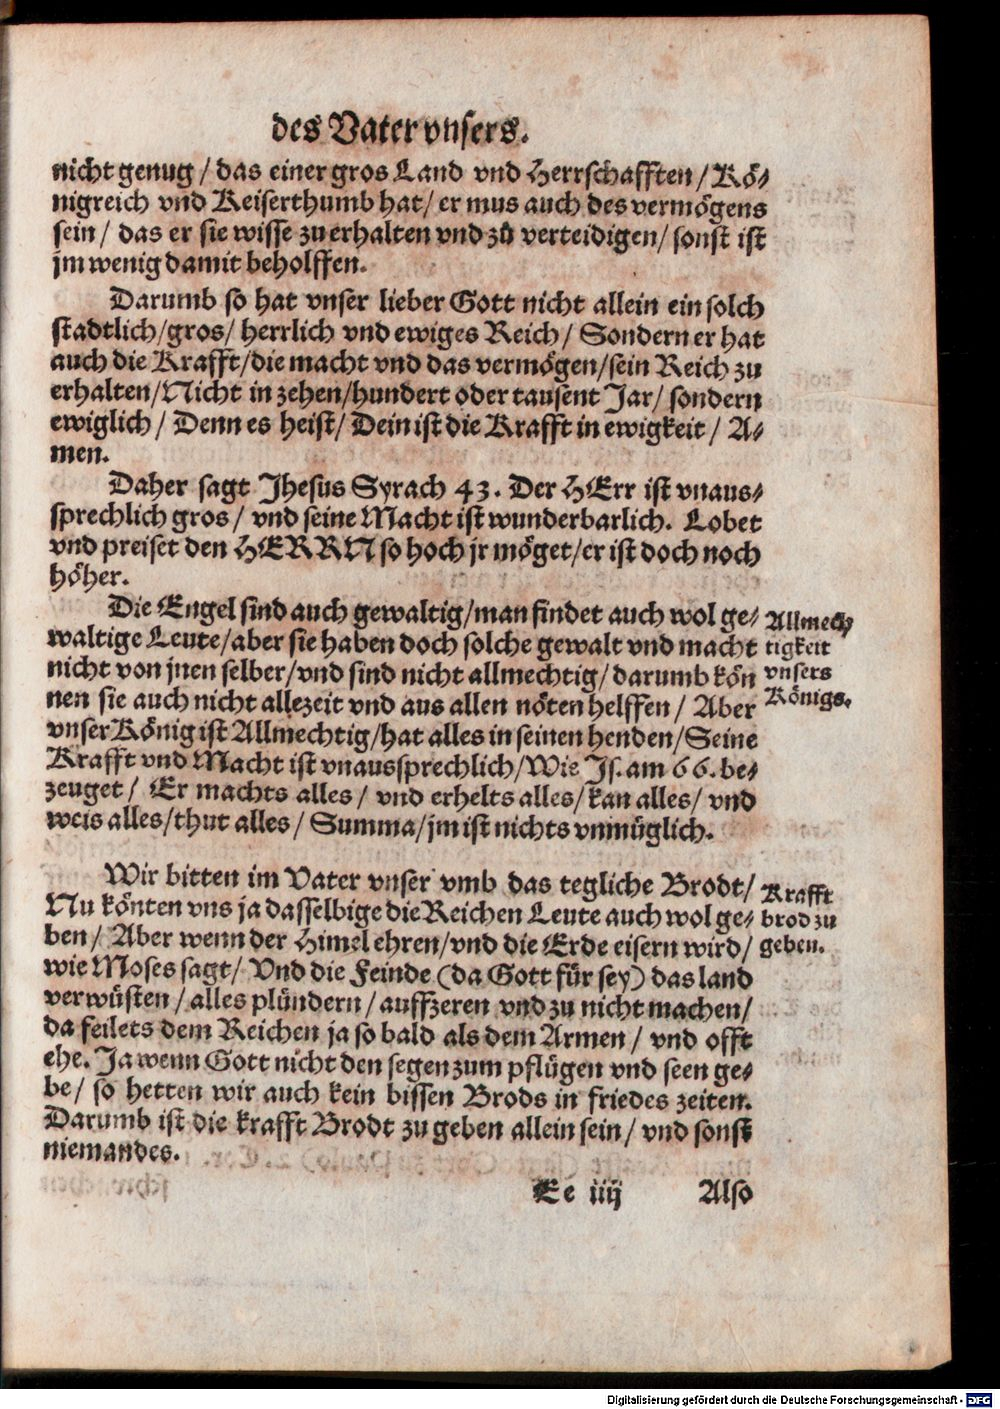 des Vater vnsers.
nicht genug / das einer gros Land vnd Herrschafften / Kö-
nigreich vnd Keiserthumb hat / er mus auch des vermögens
sein / das er sie wisse zu erhalten vnd zů verteidigen / sonst ist
jm wenig damit beholffen.
Darumb so hat vnser lieber Gott nicht allein ein solch
stadtlich / gros / herrlich vnd ewiges Reich / Sondern er hat
auch die Krafft / die macht vnd das vermögen / sein Reich zu
erhalten / Nicht in zehen / hundert oder tausent Jar / sondern
ewiglich / Denn es heist / Dein ist die Krafft in ewigkeit / A-
men.
Daher sagt Jhesus Syrach 43. Der HErr ist vnaus-
sprechlich gros / vnd seine Macht ist wunderbarlich. Lobet
vnd preiset den HERRN so hoch jr möget / er ist doch noch
höher.
Die Engel sind auch gewaltig / man findet auch wol ge-
waltige Leute / aber sie haben doch solche gewalt vnd macht
nicht von jnen selber / vnd sind nicht allmechtig / darumb kön
nen sie auch nicht allezeit vnd aus allen nöten helffen / Aber
vnser König ist Allmechtig / hat alles in seinen henden / Seine
Krafft vnd Macht ist vnaussprechlich / Wie Js. am 66. be-
zeuget / Er machts alles / vnd erhelts alles / kan alles / vnd
weis alles / thut alles / Summa / jm ist nichts vnmüglich.
Allmech-
tigkeit
vnsers
Königs.
Wir bitten im Vater vnser vmb das tegliche Brodt /
Nu könten vns ja dasselbige die Reichen Leute auch wol ge-
ben / Aber wenn der Himel ehren / vnd die Erde eisern wird /
wie Moses sagt / Vnd die Feinde (da Gott für sey) das land
verwüsten / alles plündern / auffzeren vnd zu nicht machen /
da feilets dem Reichen ja so bald als dem Armen / vnd offt
ehe. Ja wenn Gott nicht den segen zum pflügen vnd seen ge-
be / so hetten wir auch kein bissen Brods in friedes zeiten.
Darumb ist die krafft Brodt zu geben allein sein / vnd sonst
niemandes.
Krafft
brod zu
geben.
Ee iiij Also
Digitalisierung gefördert durch die Deutsche Forschungsgemeinschaft - DFG